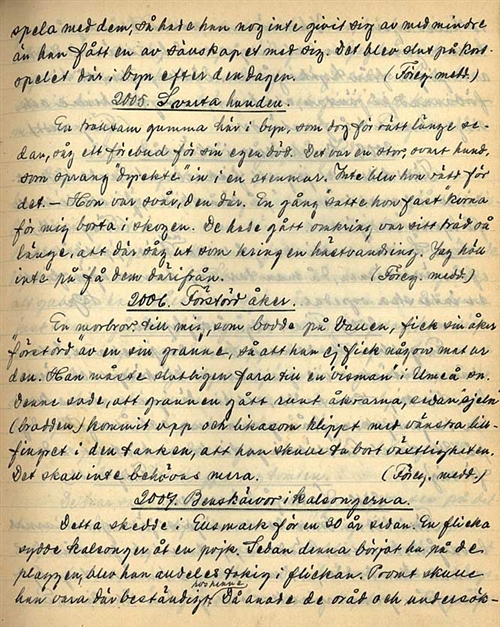 spela med dem, så hade han nog inte givit sig av med mindre
än han fått en av sällskapet med sig. Det blev slut på kort-
spelet där i byn efter den dagen. (Föreg. medd.)
2005. Svarta hunden.
En trollsam gumma här i byn, som dog för rätt länge se-
dan, såg ett förebud för sin egen död. Det var en stor, svart hund,
som sprang "direkte" in i en stenmur. Inte blev hon rädd för
det. – Hon var svår, den där. En gång "satte hon fast" korna
för mig borta i skogen. De hade gått omkring var sitt träd så
länge, att där såg ut som kring en hästvandring. Jag höll
inte på få dem därifrån. (Föreg. medd.)
2006. Förstörd åker.
En morbror till mig, som bodde på Vallen, fick sin åker
"förstörd" av en sin granne, så att han ej fick någon mat ur
den. Han måste slutligen fara till en "visman" i Umeå sn.
Denne sade, att grannen gått runt åkrarna, sedan säden
(brodden) kommit upp och likasom klippt med vänstra lill-
fingret i den tanken, att han skulle ta bort växtligheten.
Det skall inte behövas mera. (Föreg. medd.)
2007. Benskävor i kalsongerna.
Detta skedde i Ellsmark för en 30 år sedan. En flicka
sydde kalsonger åt en pojk. Sedan denna börjat ha på de
plaggen, blev han alldeles tokig i flickan. Promt skulle
han vara där beständigt hos henne. Då anade de oråd och undersök-